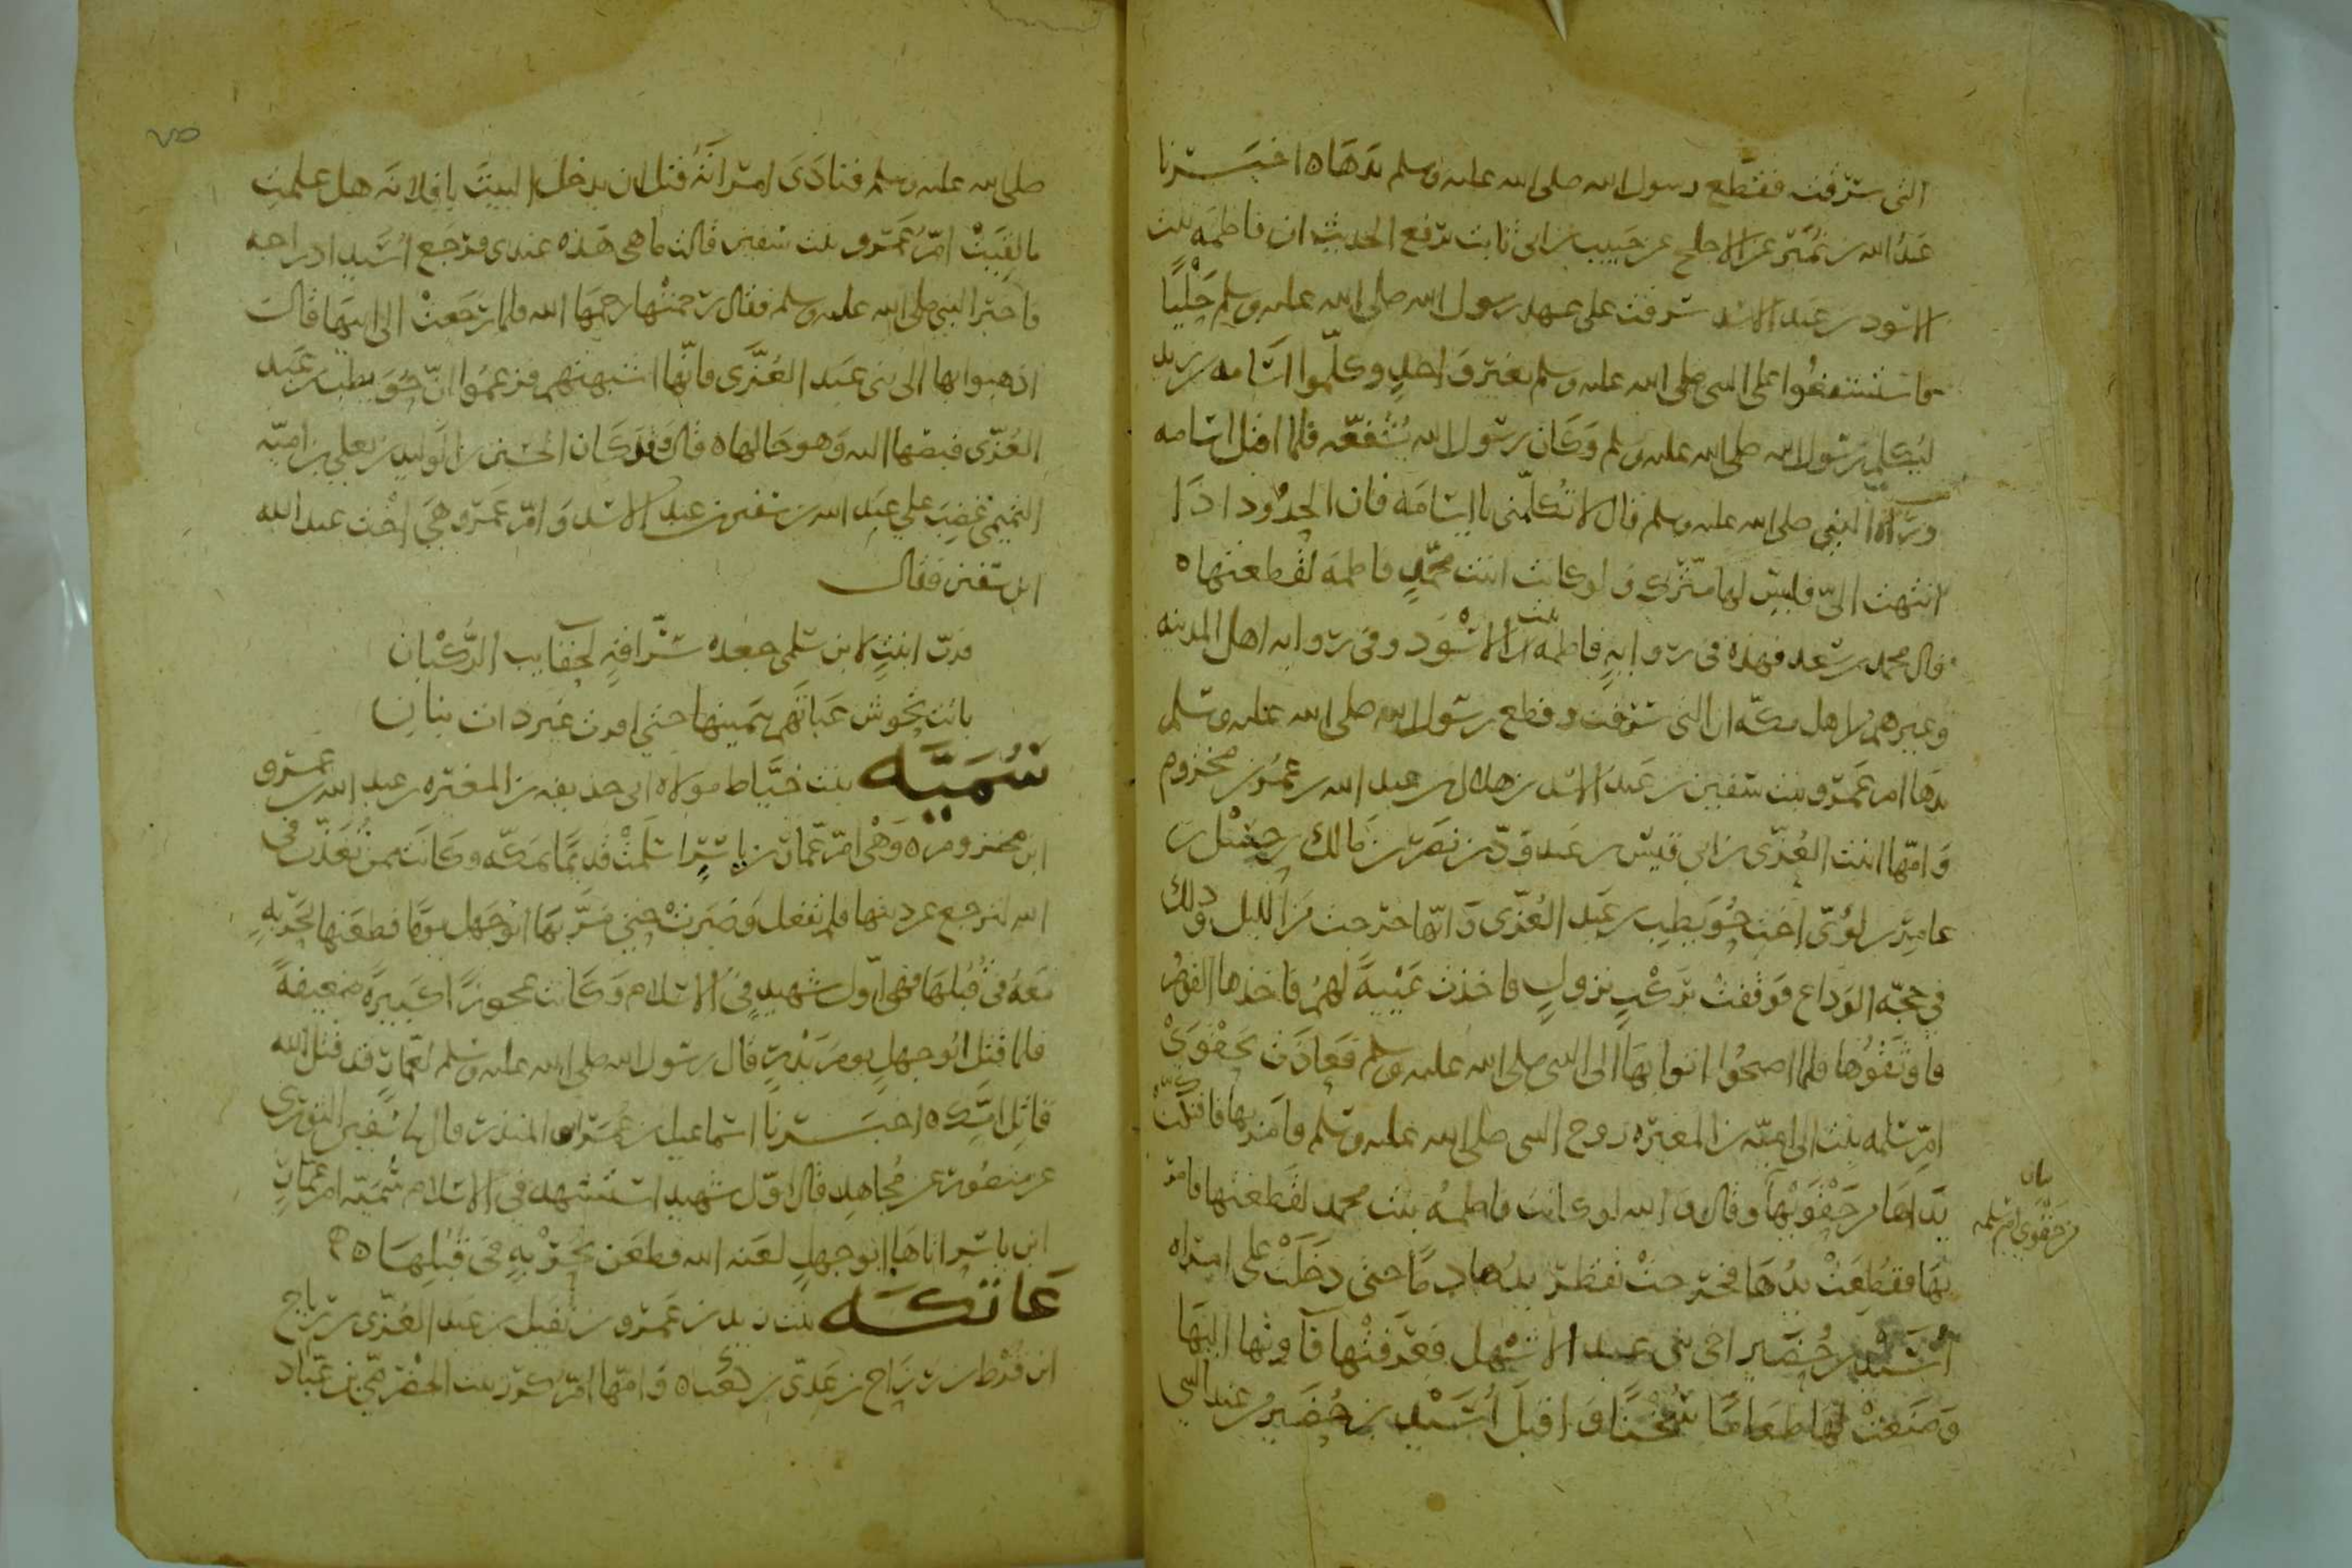 التي سرقت فقطع رسول الله صلى الله عليه وسلم يدها ه اخبرنا
عبد الله بن نمير عن الاجلح عن حبيب بن ابي ثابت يرفع الحديث ان فاطمه بنت
الاسود بن عبد الاسد سرقت على عهد رسول الله صلى الله عليه وسلم حليا
فاستشفعوا على النبي صلى الله عليه وسلم بغير واحد وكلموا اسامه بن زيد
ليكلم رسول الله صلى الله عليه وسلم وكان رسول الله يشفعه فلما اقبل اسامه
ورآه النبي صلى الله عليه وسلم قال لا تكلمني يا اسامه فان الحدود اذا
انتهت الي فليس لها مترك ولو كانت ابنت محمد فاطمه لقطعتها ه
قال محمد بن سعد فهذه في روايه فاطمه بنت الاسود وفي روايه اهل المدينه
وغيرهم من اهل مكه ان التي سرقت وقطع رسول الله صلى الله عليه وسلم
يدها ام عمرو بنت سفين بن عبد الاسد بن هلال بن عبد الله بن عمر بن مخزوم
وامها ابنت العزى بن ابي قيس بن عبد ود بن نصر بن مالك بن حسل بن
عامر بن لؤي اخت حويطب بن عبد العزى وانها خرجت من الليل وذلك
في حجه الوداع فوقفت بركب نزول فاخذت عيبة لهم فاخذها القوم
فاوثقوها فلما اصبحوا اتوا بها الى النبي صلى الله عليه وسلم فعاذت بحقوي
ام سلمه بنت ابي اميه بن المغيره زوج النبي صلى الله عليه وسلم فامر بها فافتكت
يداها من حقويها وقال والله لو كانت فاطمه بنت محمد لقطعتها فامر
بها فقطعت يدها فخرجت تقطر يدها دما حتى دخلت على امراه
اسيد بن حضير اخي بني عبد الاشهل فعرفتها فآوتها اليها
وصنعت لها طعاما سخنا واقبل اسيد بن حضير من عند النبي
بان
من حقوي ام سلمه
٧٥
صلى الله عليه وسلم فنادى امراته قبل ان يدخل البيت يا فلانه هل علمت
ما لقيت ام عمرو بنت سفين قالت ها هي هذه عندي فرجع اسيد ادراجه
فاخبر النبي صلى الله عليه وسلم فقال رحمتها رحمها الله فلما رجعت الى ابيها قالت
اذهبوا بها الى بني عبد العزى فانها اشبهتهم فزعموا ان حويطب بن عبد
العزى قبضها اليه وهو خالها ه قال وقد كان الحسين بن الوليد بن يعلى بن اميه
التميمي غضب على عبد الله بن سفين بن عبد الاسد وام عمرو هي اخت عبد الله
ابن سفين فقال
رب ابنت لابن سلمى جعده سراقة لحقايب الركبان
باتت تحوش عيابهم بيمينها حتى اقرت غير ذات بنان
سميه بنت خباط مولاه ابي حذيفه بن المغيره بن عبد الله بن عمرو
ابن مخزوم ه وهي ام عمار بن ياسر اسلمت قديما بمكه وكانت ممن تعذب في
الله لترجع عن دينها فلم تفعل وصبرت حتى مر بها ابو جهل يوما فطعنها بحربه
معه في قبلها فهي اول شهيد في الاسلام وكانت عجوزا كبيره ضعيفة
فلما قتل ابو جهل يوم بدر قال رسول الله صلى الله عليه وسلم لعمار قد قتل الله
قاتل امك ه اخبرنا اسماعيل بن عمر ابو المنذر قال نا سفين الثوري
عن منصور عن مجاهد قال اول شهيد استشهد في الاسلام سميه ام عمار
ابن ياسر اتاها ابو جهل لعنه الله فطعن بحربه في قبلها ه
عاتكه بنت زيد بن عمرو بن نفيل بن عبد العزى بن رياح
ابن قرط بن رزاح بن عدي بن كعب ه وامها ام كرز بنت الحضرمي بن عباد